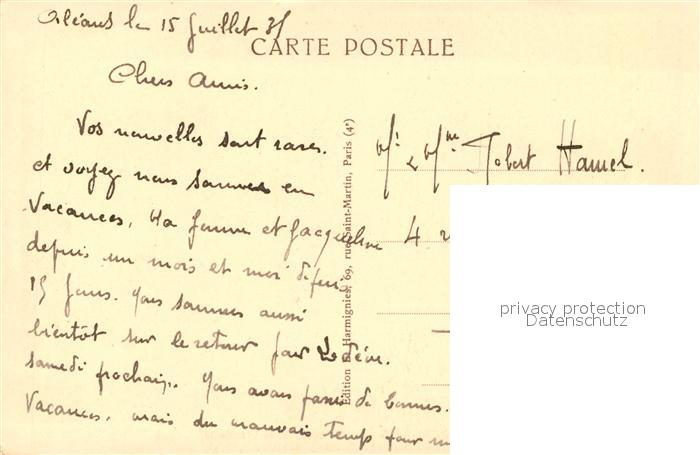 Orléans le 15 Juillet 35
CARTE POSTALE
Chers Amis.
Vos nouvelles sont rares.
et voyez nous sommes en
Vacances, Ma femme et Jacqueline
depuis un mois et moi depuis
15 jours. Nous sommes aussi
bientôt sur le retour pour
samedi prochain. Nous avons passé de bonnes.
Vacances, mais du mauvais temps pour
Mr & Mme Robert Hamel.
4
Edition d'Harmignies, 69, rue Saint-Martin, Paris (4e)
privacy protection
Datenschutz